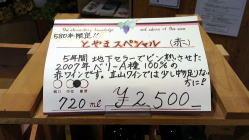 580本限定!!
とやまスペシャル (赤)
5年間 地下セラーでビン熟させた
2007年ベリーA種100%の
赤ワインです。立山ワインでは少し物足りない
方に!!
720ml ¥2,500